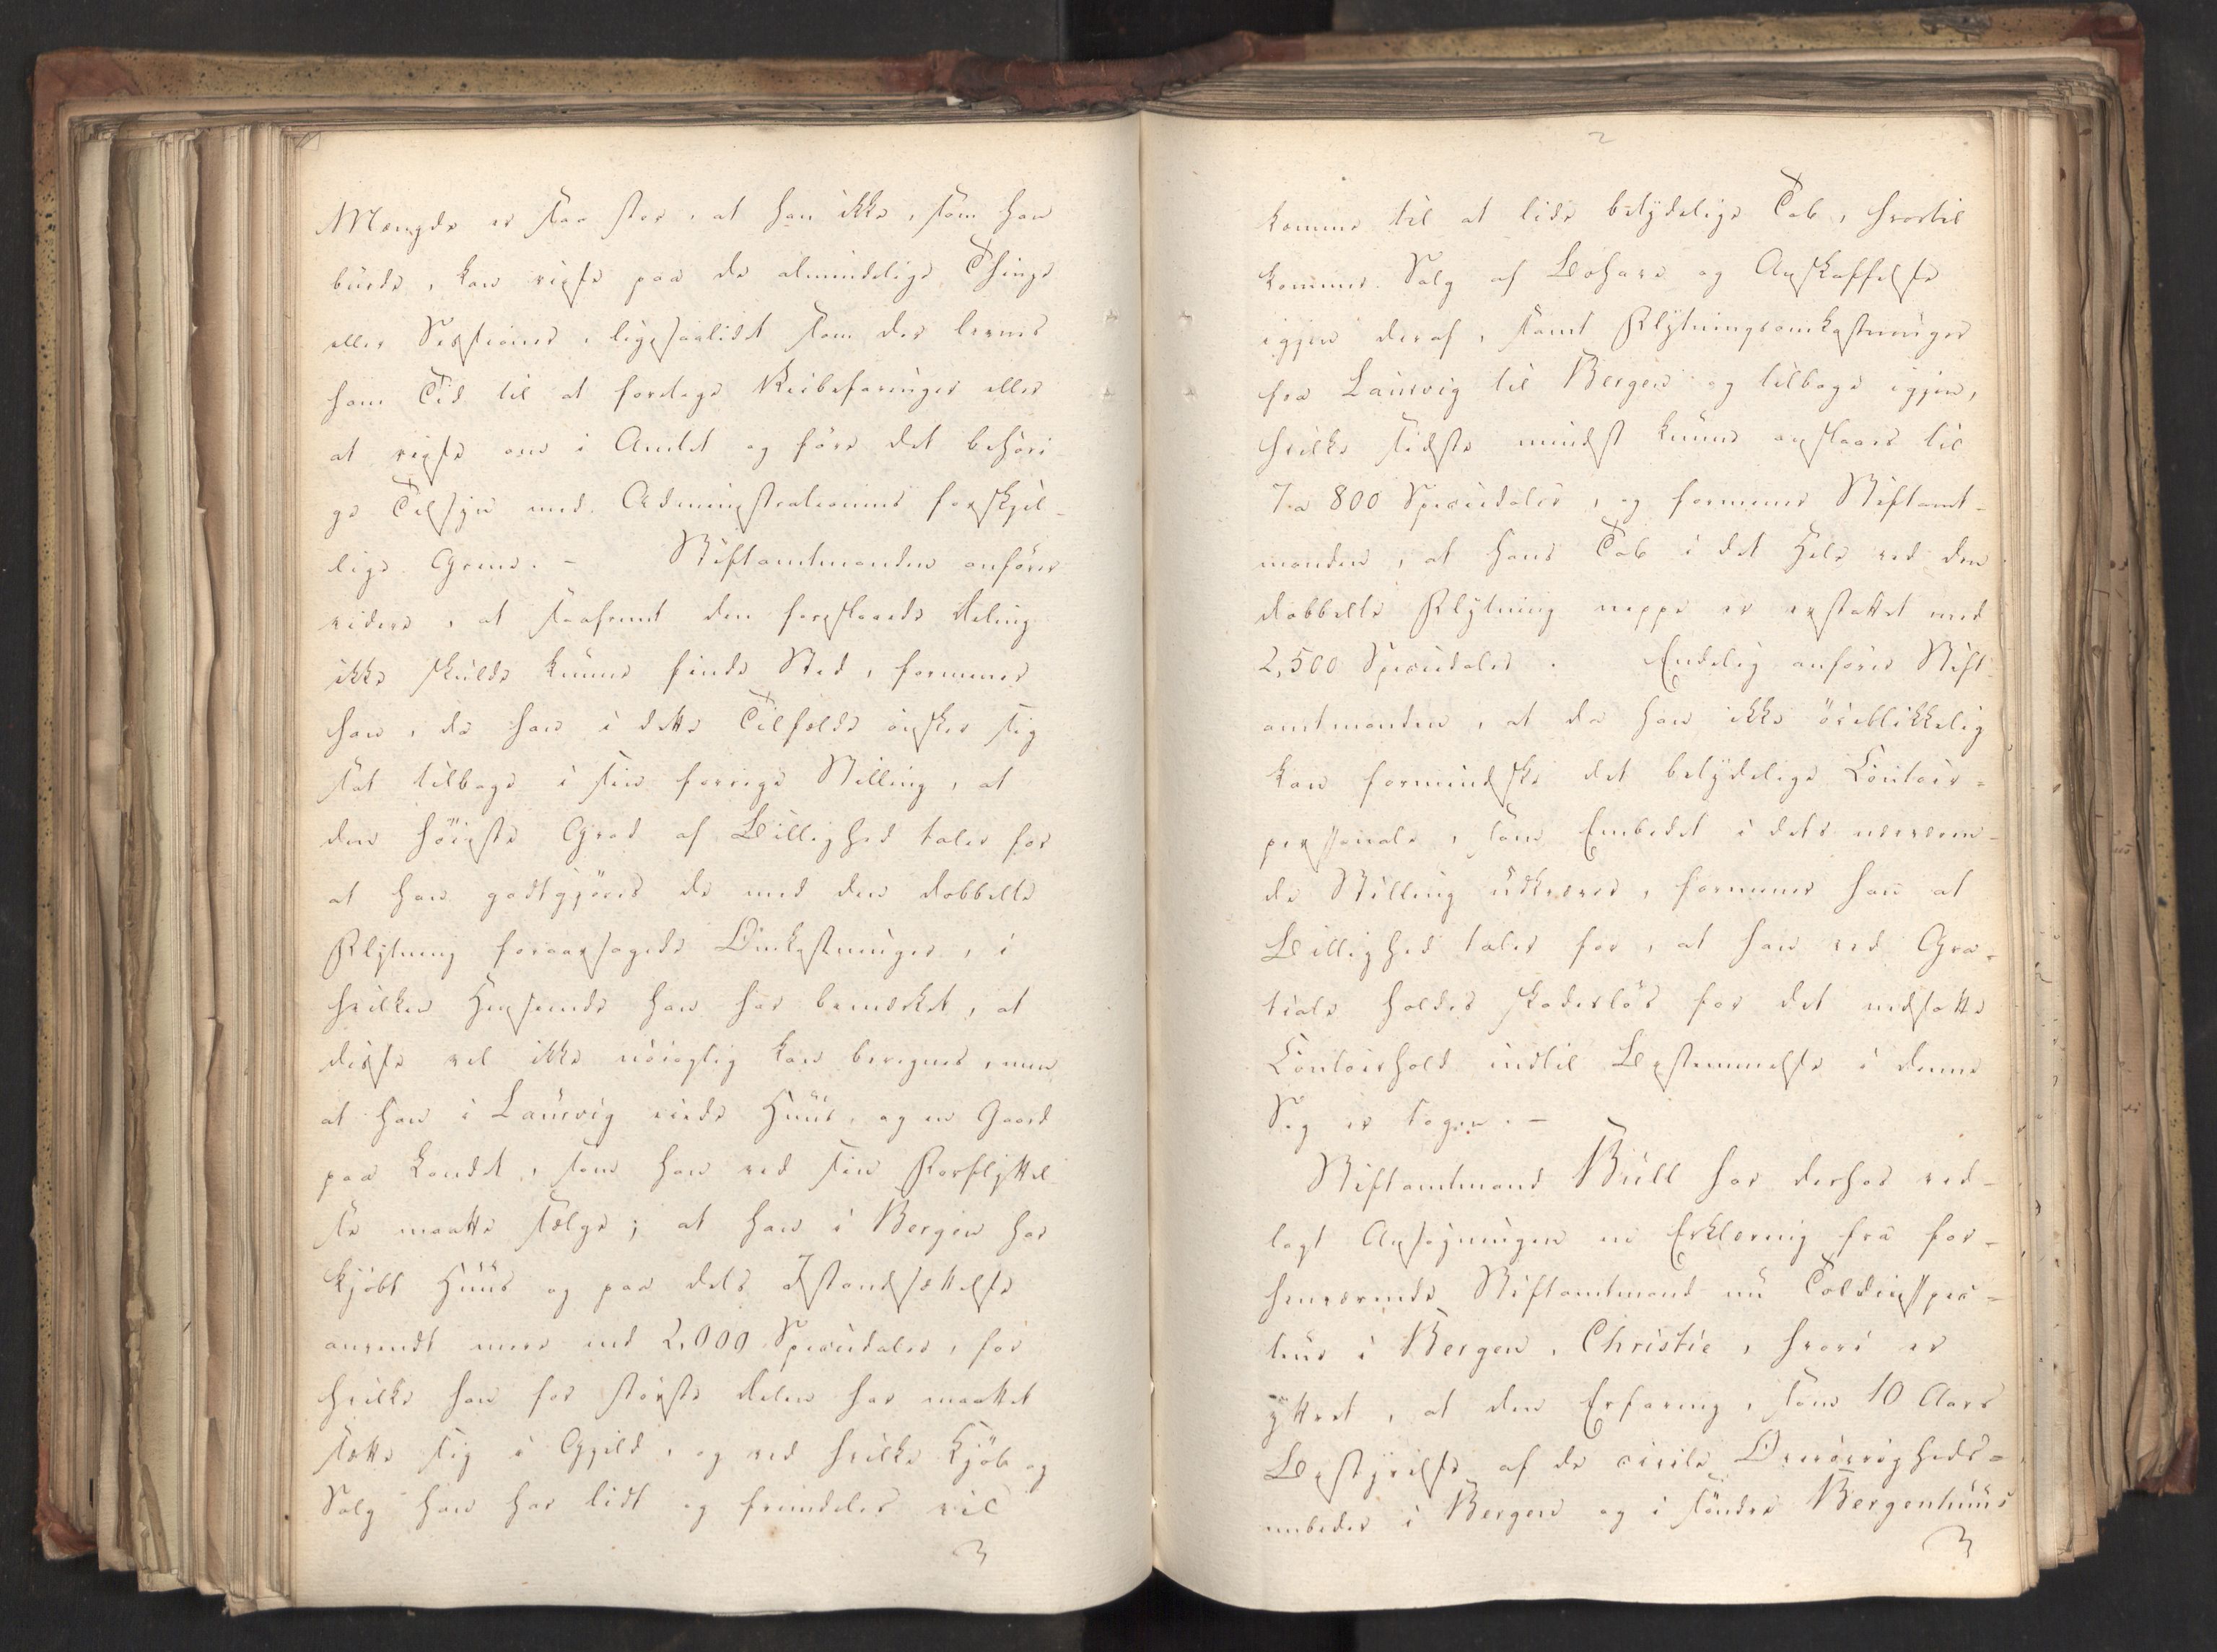 Mængde er saa stor, at han ikke, som han
burde, kan reise paa de almindelige Thinge
eller Sessioner, ligesaalidt som der levnes
ham Tid til at foretage Veibefaringer eller
at reise om i Amtet og føre det behöri
ge Tilsyn med Administrationens forskjel-
lige Grene. - Stiftamtmanden anförer
videre, at saafremt den foreslaaede Deling
ikke skulde kunne finde Sted, formener
han, da han i dette Tilfælde önsker sig
sat tilbage i sin forrige Stilling, at
den höieste Grad af Billighed taler for
at han godtgjöres de med den dobbelte
Flytning foraarsagede Omkostninger, i
hvilken Henseende han har bemærket, at
disse vel ikke nöiagtig kan beregnes, men
at han i Laurvig eiede Huus, og en Gaard
paa Landet, som han ved sin Forflyttel
se maatte sælge; at han i Bergen har
kjöbt Huus og paa dets Istandsættelse
anvendt mere end 2,000 Speciedaler, for
hvilke han for störste Delen har maattet
sætte sig i Gjeld, og ved hvilke Kjöb og
Salg han har lidt og fremdeles vil
2
komme til at lide betydelige Tab, hvortil
kommer Salg af Bohave og Anskaffelse
igjen deraf, samt Flytningsomkostninger
fra Laurvig til Bergen og tilbage igjen,
hvilke sidste mindst kunne anslaaes til
7 a 800 Speciedaler, og formener Stiftamt-
manden, at hans Tab i det Hele ved den
dobbelte Flytning neppe er erstattet med
2,500 Speciedaler. Endelig anförer Stift-
amtmanden, at da han ikke öieblikkelig
kan formindske det betydelige Contoir-
personale, som Embedet i dets nærværen-
de Stilling udkræver, formener han at
Billighed taler for, at han ved Gra-
tiale holdes skadeslös for det nedsatte
Contoirhold indtil Bestemmelse i denne
Sag er tagen. -
Stiftamtmand Bull har derhos ved-
lagt Ansögningen en Erklæring fra for-
henværende Stiftamtmand nu Toldinspec-
teur i Bergen, Christie, hvori er
yttret, at den Erfaring, som 10 Aars
Bestyrelse af de civile Overövrigheds-
embeder i Bergen og i söndre Bergenhuus